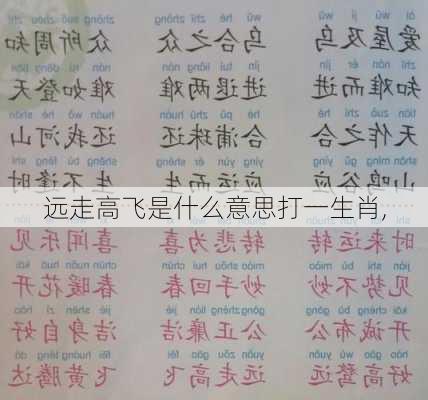 ài wū jí wū wū hé zhī zhòng zhòng suǒ zhōu zhī
爱屋及乌 乌合之众 众所周知
zhī nán ér jìn jìn tuì liǎng nán nán rú dēng tiān
知难而进 进退两难 难如登天
tiān zuò zhī hé hé pǔ zhū huán huán wǒ hé shān
天作之合 合浦珠还 还我河山
shān míng gǔ yìng yìng yùn ér shēng shēng bù féng shí
山鸣谷应 应运而生 生不逢时
远走高飞是什么意思打一生肖,
时来运转 转悲为喜 喜闻乐见
jiàn shì bú miào miào shǒu huí chūn chūn nuǎn huā kāi
见势不妙 妙手回春 春暖花开
kāi chéng bù gōng gōng zhèng lián jié jié shēn zì hào
开诚布公 公正廉洁 洁身自好
hào gāo wù yuǎn yuǎn zǒu gāo fēi fēi huáng téng dá
好高骛远 远走高飞 飞黄腾达